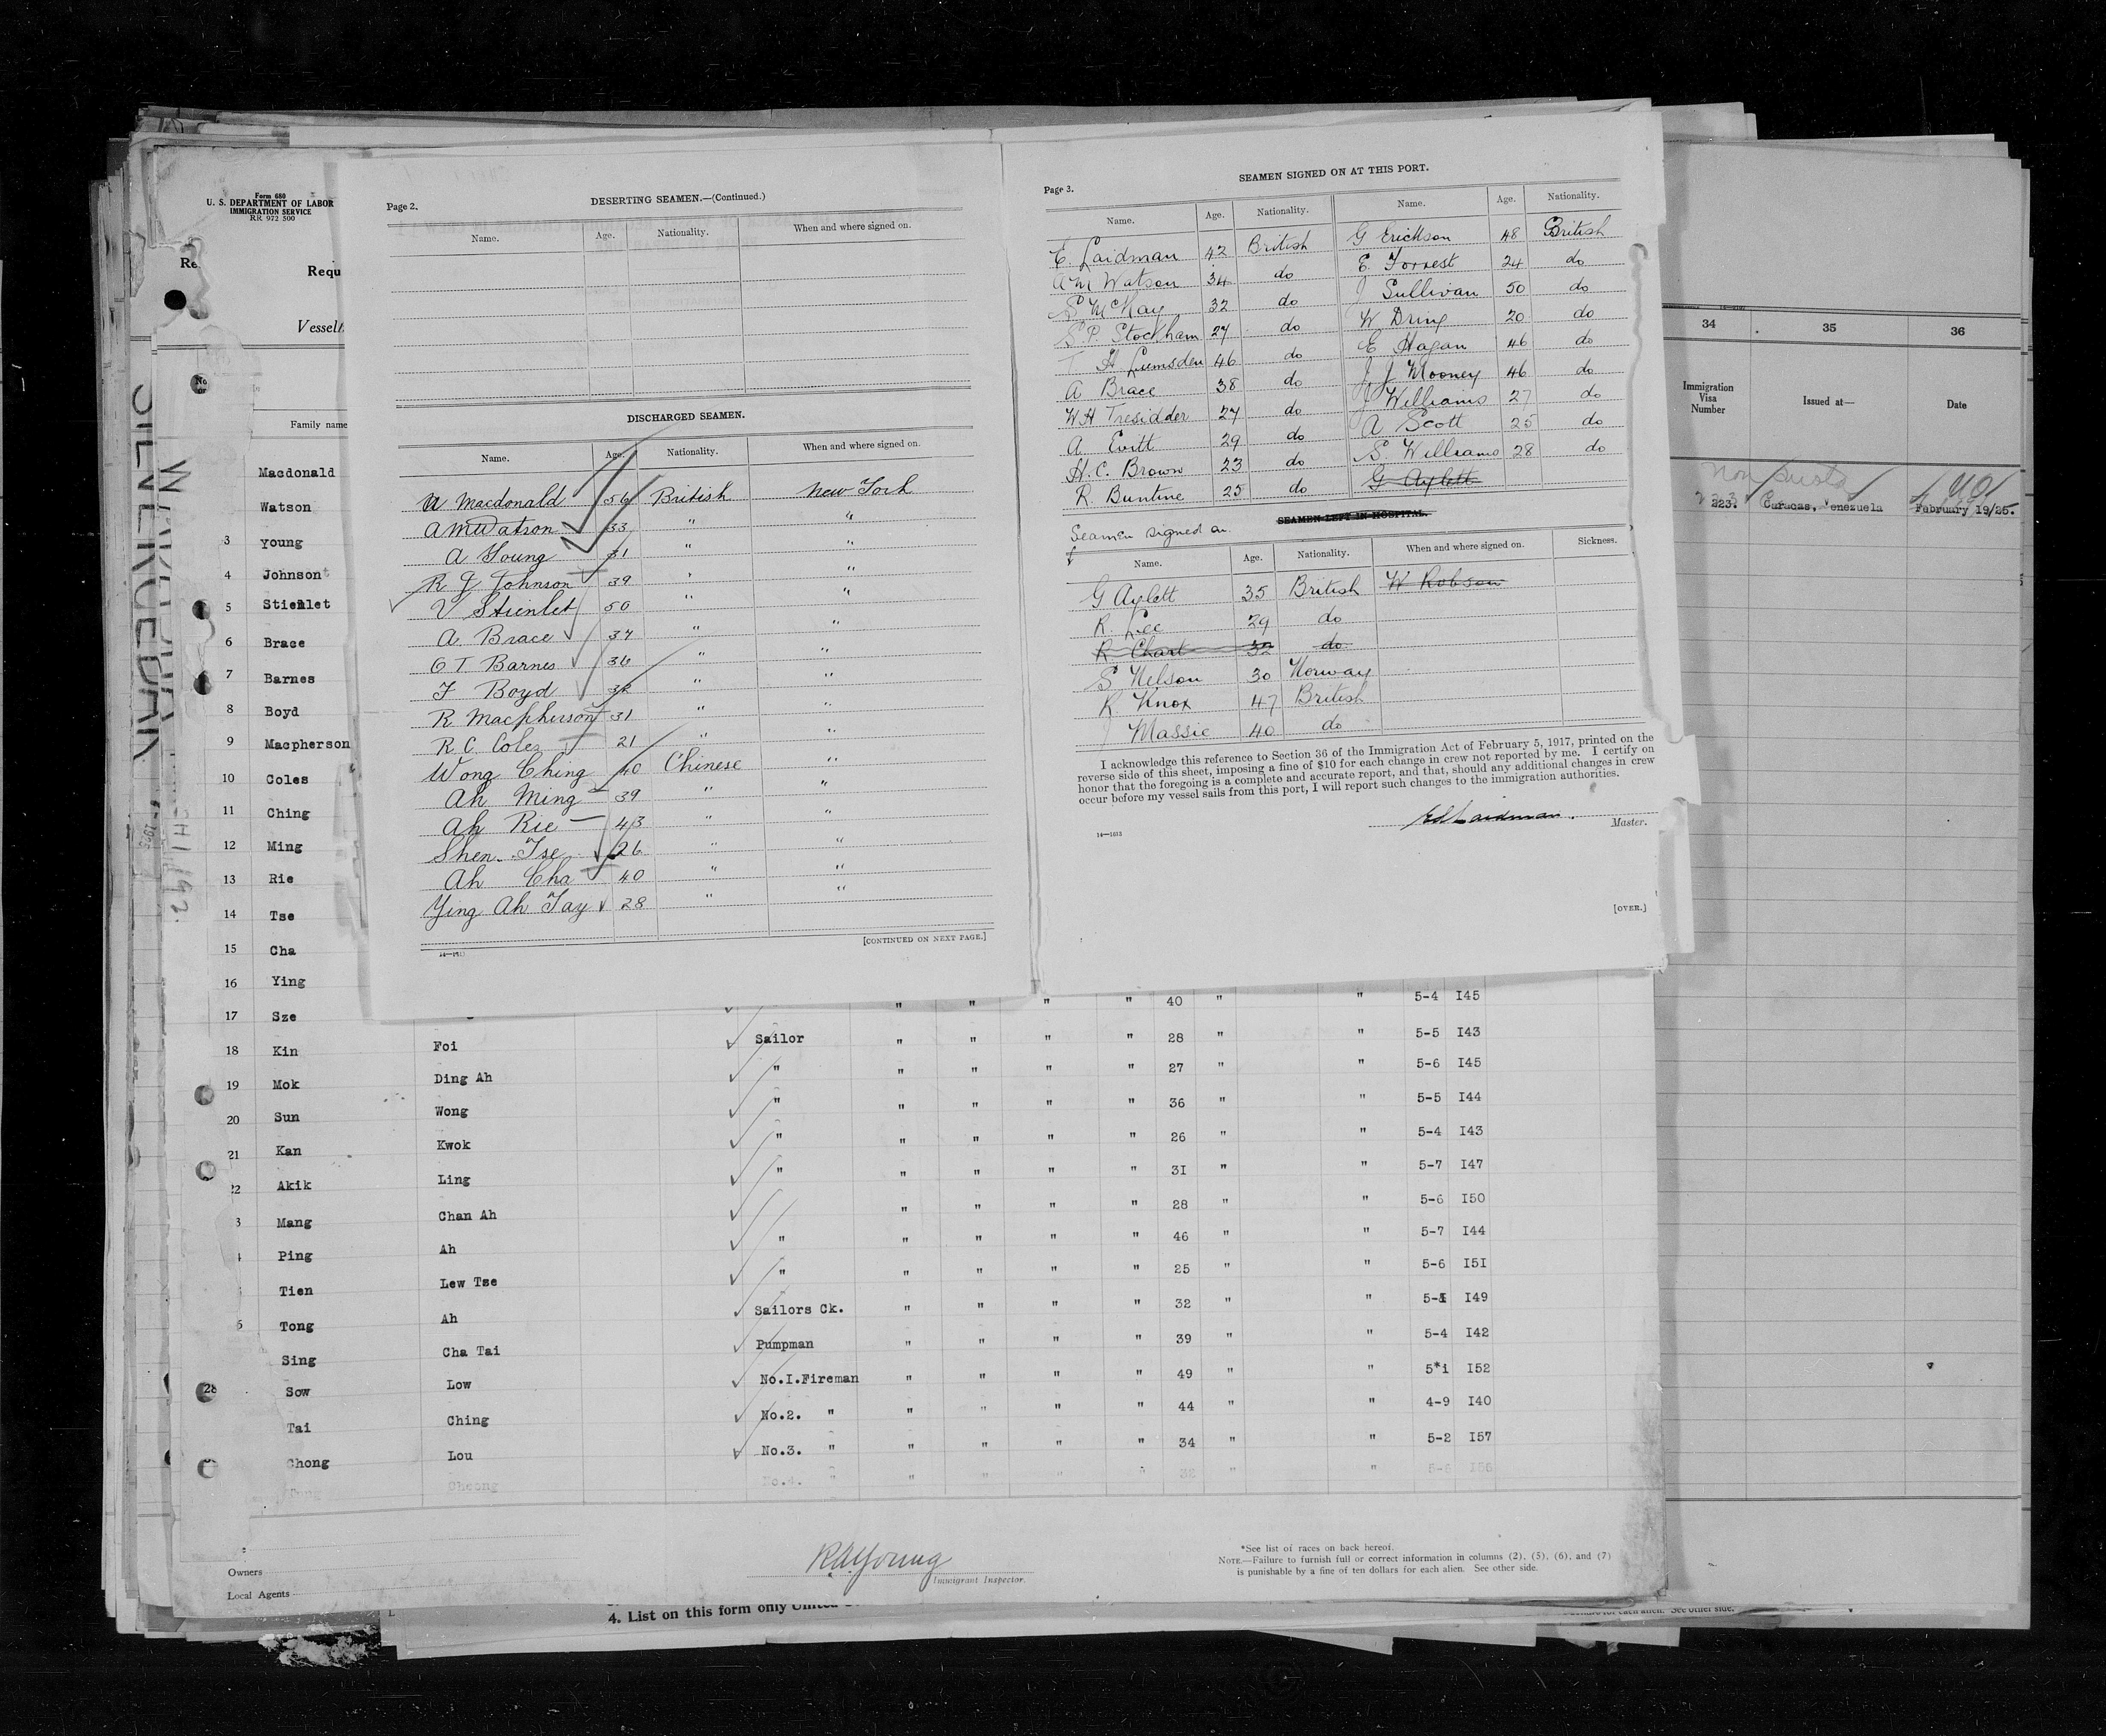 Form 680
U. S. DEPARTMENT OF LABOR
IMMIGRATION SERVICE
RR 972 500
Requ
Vessel
Family name
Macdonald
Watson
3 Young
4 Johnson
5 Stienlet
6 Brace
7 Barnes
8 Boyd
9 Macpherson
10 Coles
11 Ching
12 Ming
13 Rie
14 Tse
15 Cha
16 Ying
Page 2.
DESERTING SEAMEN.—(Continued.)
Name. Age. Nationality. When and where signed on.
DISCHARGED SEAMEN.
Name. Age. Nationality. When and where signed on.
A Macdonald 56 British New York
A M Watson 33 " "
A Young 31 " "
R J Johnson 39 " "
V Stienlet 50 " "
A. Brace 37 " "
O T Barnes 36 " "
F Boyd 32 " "
R Macpherson 31 " "
R C. Coles 21 " "
Wong Ching 40 Chinese "
Ah Ming 39 " "
Ah Rie 43 " "
Shen Tse 26 " "
Ah Cha 40 " "
Ying Ah Tay 28 " "
[CONTINUED ON NEXT PAGE.]
Page 3.
SEAMEN SIGNED ON AT THIS PORT.
Name. Age. Nationality. Name. Age. Nationality.
E. Laidman 42 British G Erickson 48 British
A M Watson 34 do E. Forrest 24 do
S McKay 32 do J Sullivan 50 do
S. P. Stockham 27 do W Dring 20 do
T H Lumsden 46 do E Hagan 46 do
A Brace 38 do J J Mooney 46 do
W H Tresidder 27 do J Williams 27 do
A Evitt 29 do A Scott 25 do
H. C. Brown 23 do S. Williams 28 do
R. Buntine 25 do G Aylett
Seamen signed on SEAMEN LEFT IN HOSPITAL.
Name. Age. Nationality. When and where signed on. Sickness.
G Aylett 35 British W Robson
R. Lee 29 do
R Chart 32 do
S Nelson 30 Norway
R. Knox 47 British
J Massie 40 do
I acknowledge this reference to Section 36 of the Immigration Act of February 5, 1917, printed on the
reverse side of this sheet, imposing a fine of $10 for each change in crew not reported by me. I certify on
honor that the foregoing is a complete and accurate report, and that, should any additional changes in crew
occur before my vessel sails from this port, I will report such changes to the immigration authorities.
Ed Laidman. Master.
14—1513
[OVER.]
34 35 36
Immigration Visa Number Issued at— Date
223. Caracas, Venezuela February 19/25.
17 Sze " " " " 40 " " 5-4 I45
18 Kin Foi Sailor " " " " 28 " " 5-5 I43
19 Mok Ding Ah " " " " " 27 " " 5-6 I45
20 Sun Wong " " " " " 36 " " 5-5 I44
21 Kan Kwok " " " " " 26 " " 5-4 I43
22 Akik Ling " " " " " 31 " " 5-7 I47
3 Mang Chan Ah " " " " 28 " " 5-6 I50
Ping Ah " " " " " 46 " " 5-7 I44
Tien Lew Tse " " " " " 25 " " 5-6 I5I
Tong Ah Sailors Ck. " " " " 32 " " I49
Sing Cha Tai Pumpman " " " " 39 " " 5-4 I42
28 Sow Low No.I.Fireman " " " " 49 " " 5*1 I52
Tai Ching No.2. " " " " " 44 " " 4-9 I40
Chong Lou No.3. " " " " " 34 " " 5-2 I57
Cheong No.4. " " " " " 32 " " I56
Owners
Local Agents
R A Young
Immigrant Inspector.
*See list of races on back hereof.
NOTE.—Failure to furnish full or correct information in columns (2), (5), (6), and (7)
is punishable by a fine of ten dollars for each alien. See other side.
4. List on this form only United